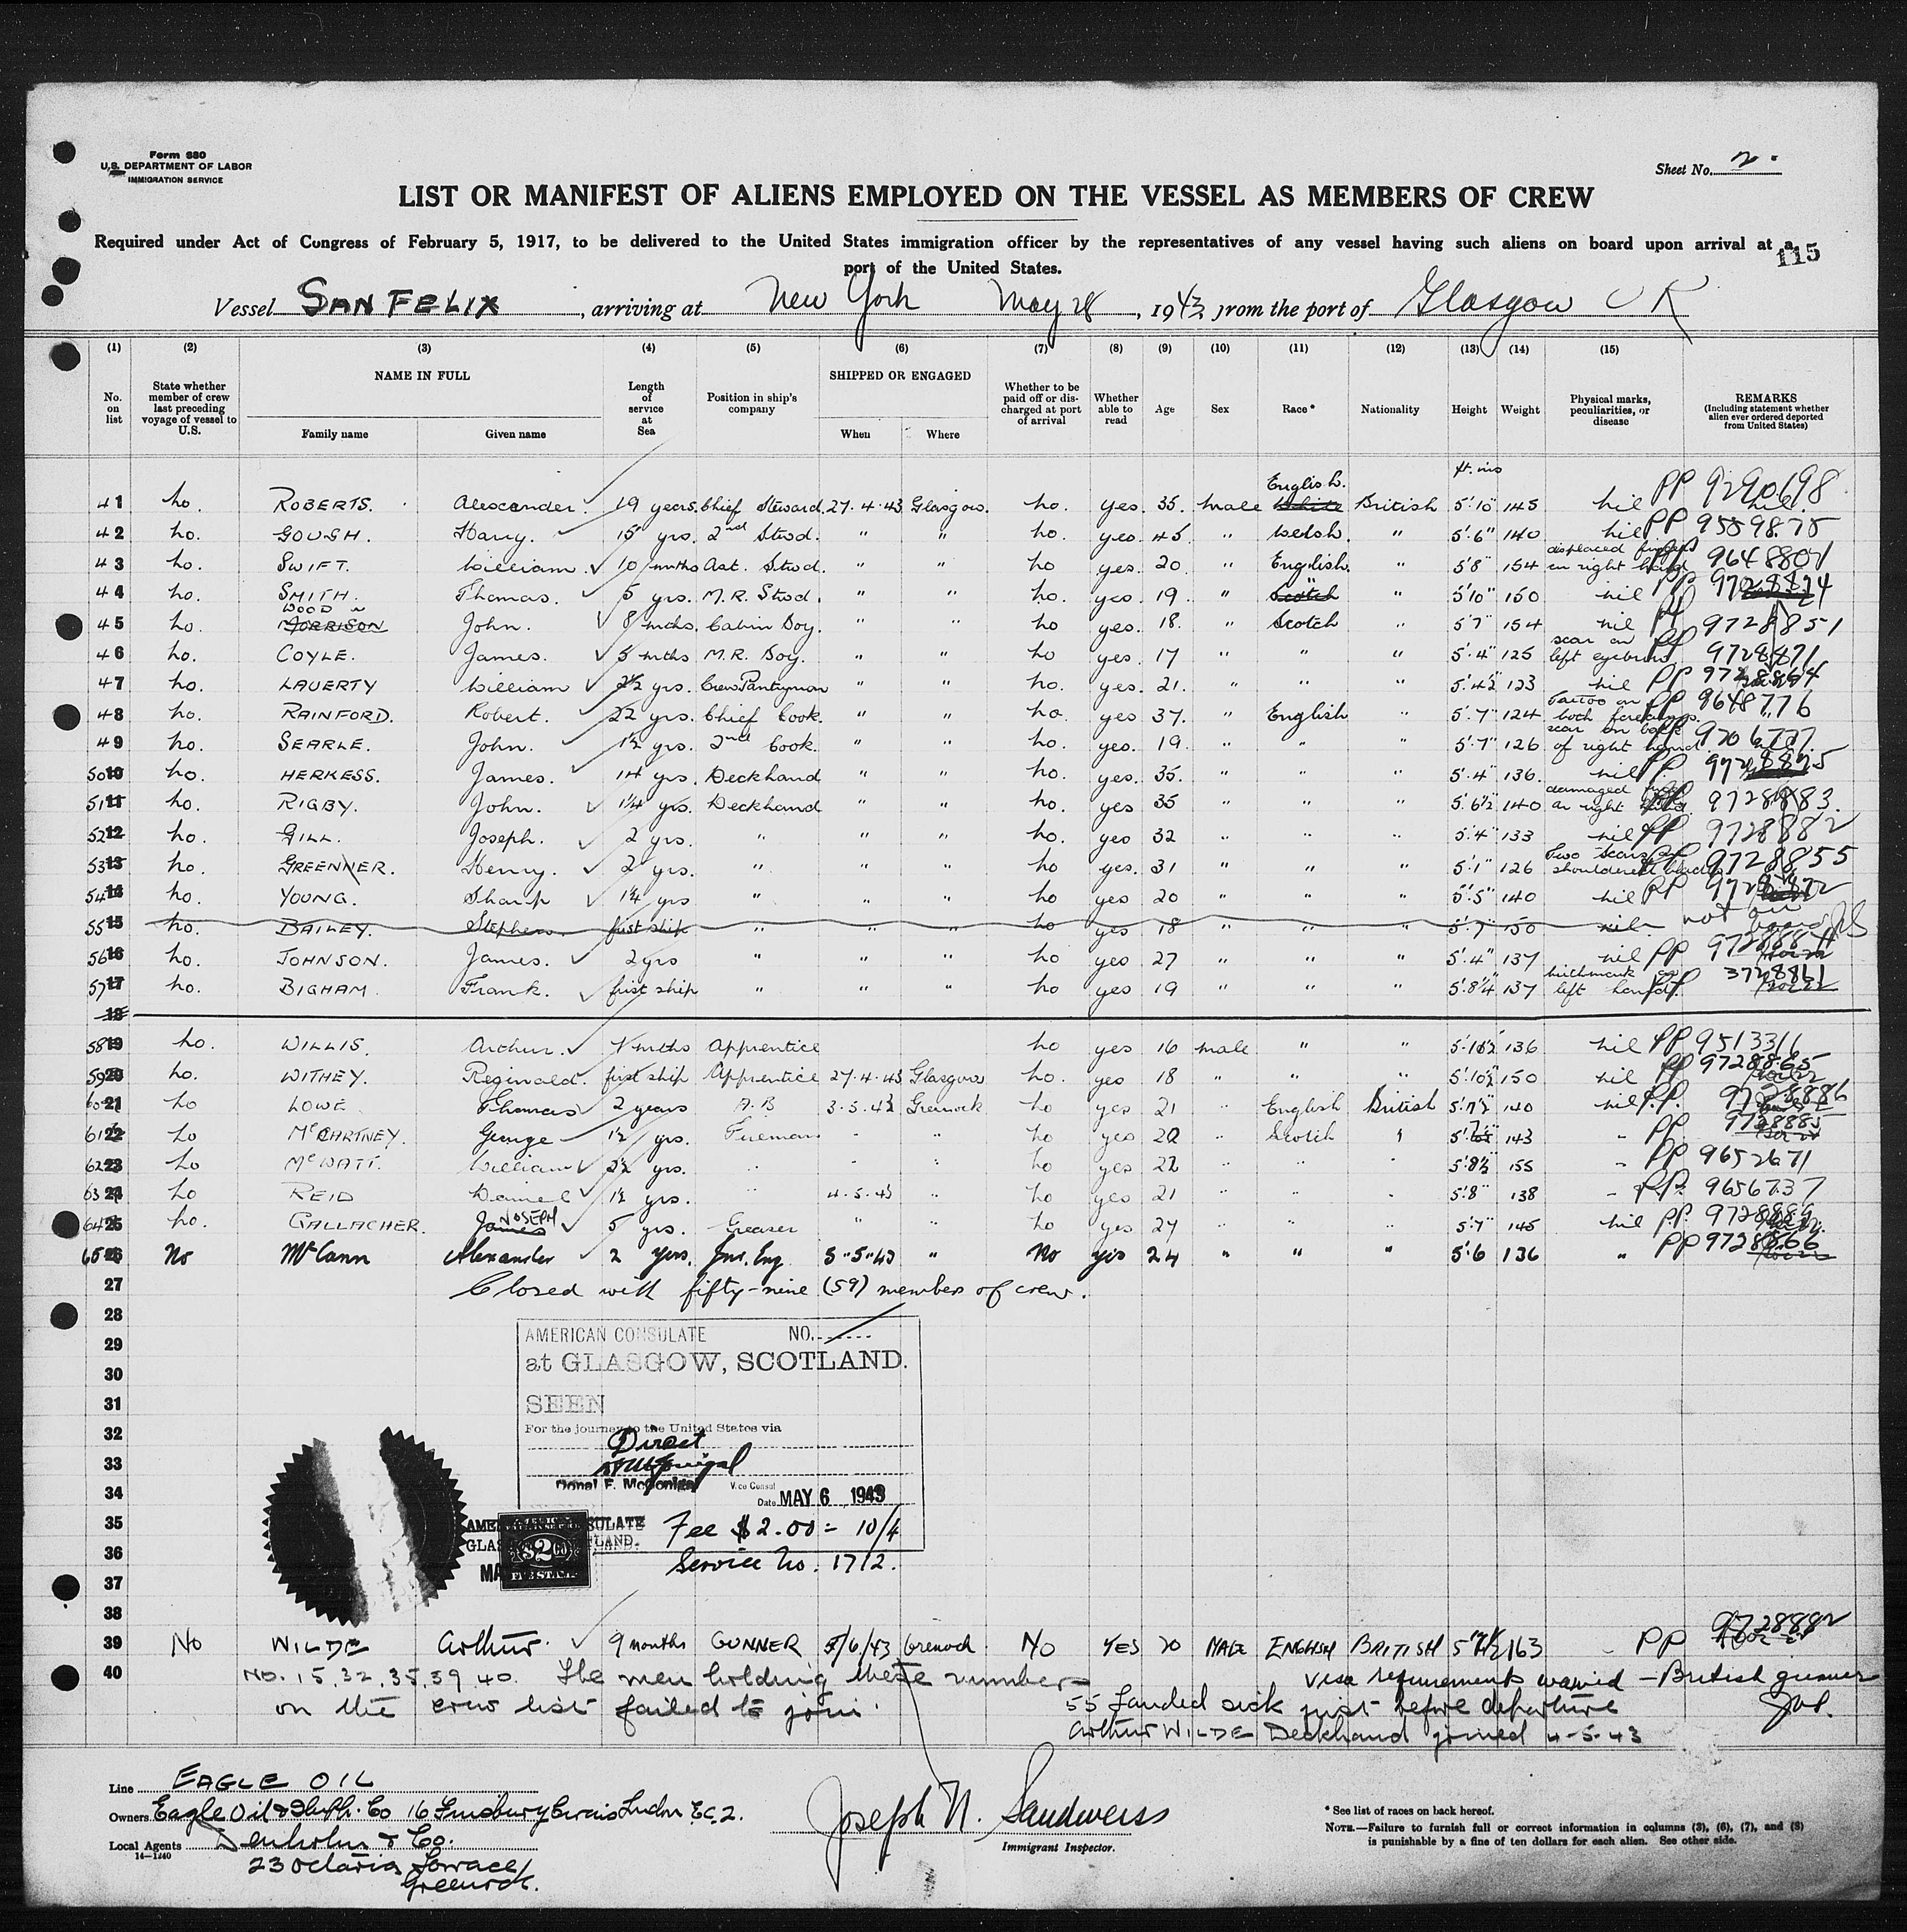 Form 680
U.S. DEPARTMENT OF LABOR
IMMIGRATION SERVICE
Sheet No. 2.
LIST OR MANIFEST OF ALIENS EMPLOYED ON THE VESSEL AS MEMBERS OF CREW
Required under Act of Congress of February 5, 1917, to be delivered to the United States immigration officer by the representatives of any vessel having such aliens on board upon arrival at a
port of the United States.
115
Vessel SAN FELIX, arriving at New York May 28, 1943 from the port of Glasgow UK
(1) (2) (3) (4) (5) (6) (7) (8) (9) (10) (11) (12) (13) (14) (15)
No. on list State whether member of crew last preceding voyage of vessel to U.S. NAME IN FULL Family name Given name Length of service at Sea Position in ship's company SHIPPED OR ENGAGED When Where Whether to be paid off or discharged at port of arrival Whether able to read Age Sex Race* Nationality Height Weight Physical marks, peculiarities, or disease REMARKS (Including statement whether alien ever ordered deported from United States)
ft. ins
41 no. ROBERTS. Alexander. 19 years. Chief Steward. 27.4.43 Glasgow. no. yes. 35. male White English. British 5'.10" 145 nil PP 9290698 nil
42 no. GOUGH. Harry. 15 yrs. 2nd Stwd. " " no. yes. 45. " Welsh. " 5'.6" 140 nil PP 9559875
43 no. SWIFT. William. 10 mnths Ast. Stwd. " " no yes. 20. " English. " 5'8" 154 displaced fingers on right hand PP 9648807
44 no. SMITH. Thomas. 5 yrs. M.R. Stwd. " " no. yes. 19. " Scotch " " 5'10" 150 nil PP
45 no. MORRISON WOOD John. 8 mths. Cabin Boy. " " no yes. 18. " Scotch " 5'7" 154 nil PP 9728851
46 no. COYLE. James. 5 mths M.R. Boy. " " no yes. 17 " " " 5'.4" 125 scar on left eyebrow PP 9728871
47 no. LAVERTY William 2½ yrs. Crew Pantryman " " no. yes. 21. " " " 5'.4½" 123 nil PP 9728864
48 no. RAINFORD. Robert. 22 yrs. Chief Cook. " " no. yes 37. " English " 5'.7" 124 Tattoo on both forearms. PP 9648776
49 no. SEARLE. John. 1½ yrs. 2nd Cook. " " no. yes. 19. " " " 5'.7" 126 scar on back of right hand. PP
50 10 no. HERKESS. James. 14 yrs. Deckhand " " no. yes. 35. " " " 5'.4" 136. nil PP.
51 11 no. RIGBY. John. 1¼ yrs. Deckhand " " no. yes 35 " " " 5'.6½" 140 damaged on right PP 9728883.
52 12 no. GILL. Joseph. 2 yrs. " " " no. yes 32 " " " 5'.4" 133 nil PP 9728882
53 13 no. GREENNER. Henry. 2 yrs. " " " no yes. 31 " " " 5'.1" 126 Two scars on shoulder PP 9728855
54 14 no. YOUNG. Sharp 1¼ yrs " " " no yes 20 " " " 5'.5" 140 nil PP
55 15 no. BAILEY. Stephen. first ship " " " no yes 18 " " " 5'.7" 150 nil not on board
56 16 no. JOHNSON. James. 2 yrs " " " no yes 27 " " " 5'.4" 137 nil PP
57 17 no. BIGHAM. Frank. first ship " " " no yes 19 " " " 5'.8¼" 137 birthmark on left hand. PP 3728861
18
58 19 no. WILLIS. Arthur. mths Apprentice no yes 16 male " " 5'.10½" 136 nil PP 9513311
59 20 no. WITHEY. Reginald. first ship Apprentice 27.4.43 Glasgow no. yes 18 " " " 5'.10½" 150 nil PP 9728865
60 21 no LOWE Thomas 2 years A.B 3.5.43 Greenock no yes 21 " English British 5'.7½" 140 nil PP. 9728886
61 22 no McCARTNEY. George 1½ yrs. Fireman " " no yes 20 " Scotch " 143 " PP 9728885
62 23 no McWATT. William 2½ yrs. " " " no yes 22 " " " 5'8½" 155 " PP 9652671
63 24 no REID Daniel 1½ yrs. " 4.5.43 " no yes 21 " " " 5'8" 138 " PP. 9656737
64 25 no. GALLACHER. James JOSEPH 5 yrs. Greaser " " no yes 27 " " " 5'.7" 145 nil PP.
65 26 No McCann Alexander 2 yrs. Jnr. Eng 5.5.43 " No yes 24 " " " 5'.6 136 " PP 9728866
27 Closed with fifty-nine (59) members of crew.
28
29
30
31
32
33
34
35
36
37
38
AMERICAN CONSULATE NO.
at GLASGOW, SCOTLAND.
SEEN
For the journey to the United States via
Direct
Donal F. McGonigal
Vice Consul
Date MAY 6 1943
AMERICAN CONSULATE
Fee $2.00 = 10/4
Service No. 1712.
39 No WILDE Arthur. 9 months GUNNER 5/6/43 Grenock. No YES 20 MALE ENGLISH BRITISH 5'7½ 163 - PP 9728882
40 No. 15, 32, 35, 39, 40. The men holding these numbers visa requirements waived - British gunner
on the crew list failed to join. 55 Landed sick just before departure
Arthur WILDE Deckhand joined 4-5-43
Line EAGLE OIL
Owners Eagle Oil & Ship. Co 16 Finsbury Circus London E.C.2.
Local Agents Denholm & Co.
14-1240
23 Octavia Terrace
Greenock.
Joseph N. Sandweiss
Immigrant Inspector.
* See list of races on back hereof.
NOTE.—Failure to furnish full or correct information in columns (3), (6), (7), and (8)
is punishable by a fine of ten dollars for each alien. See other side.